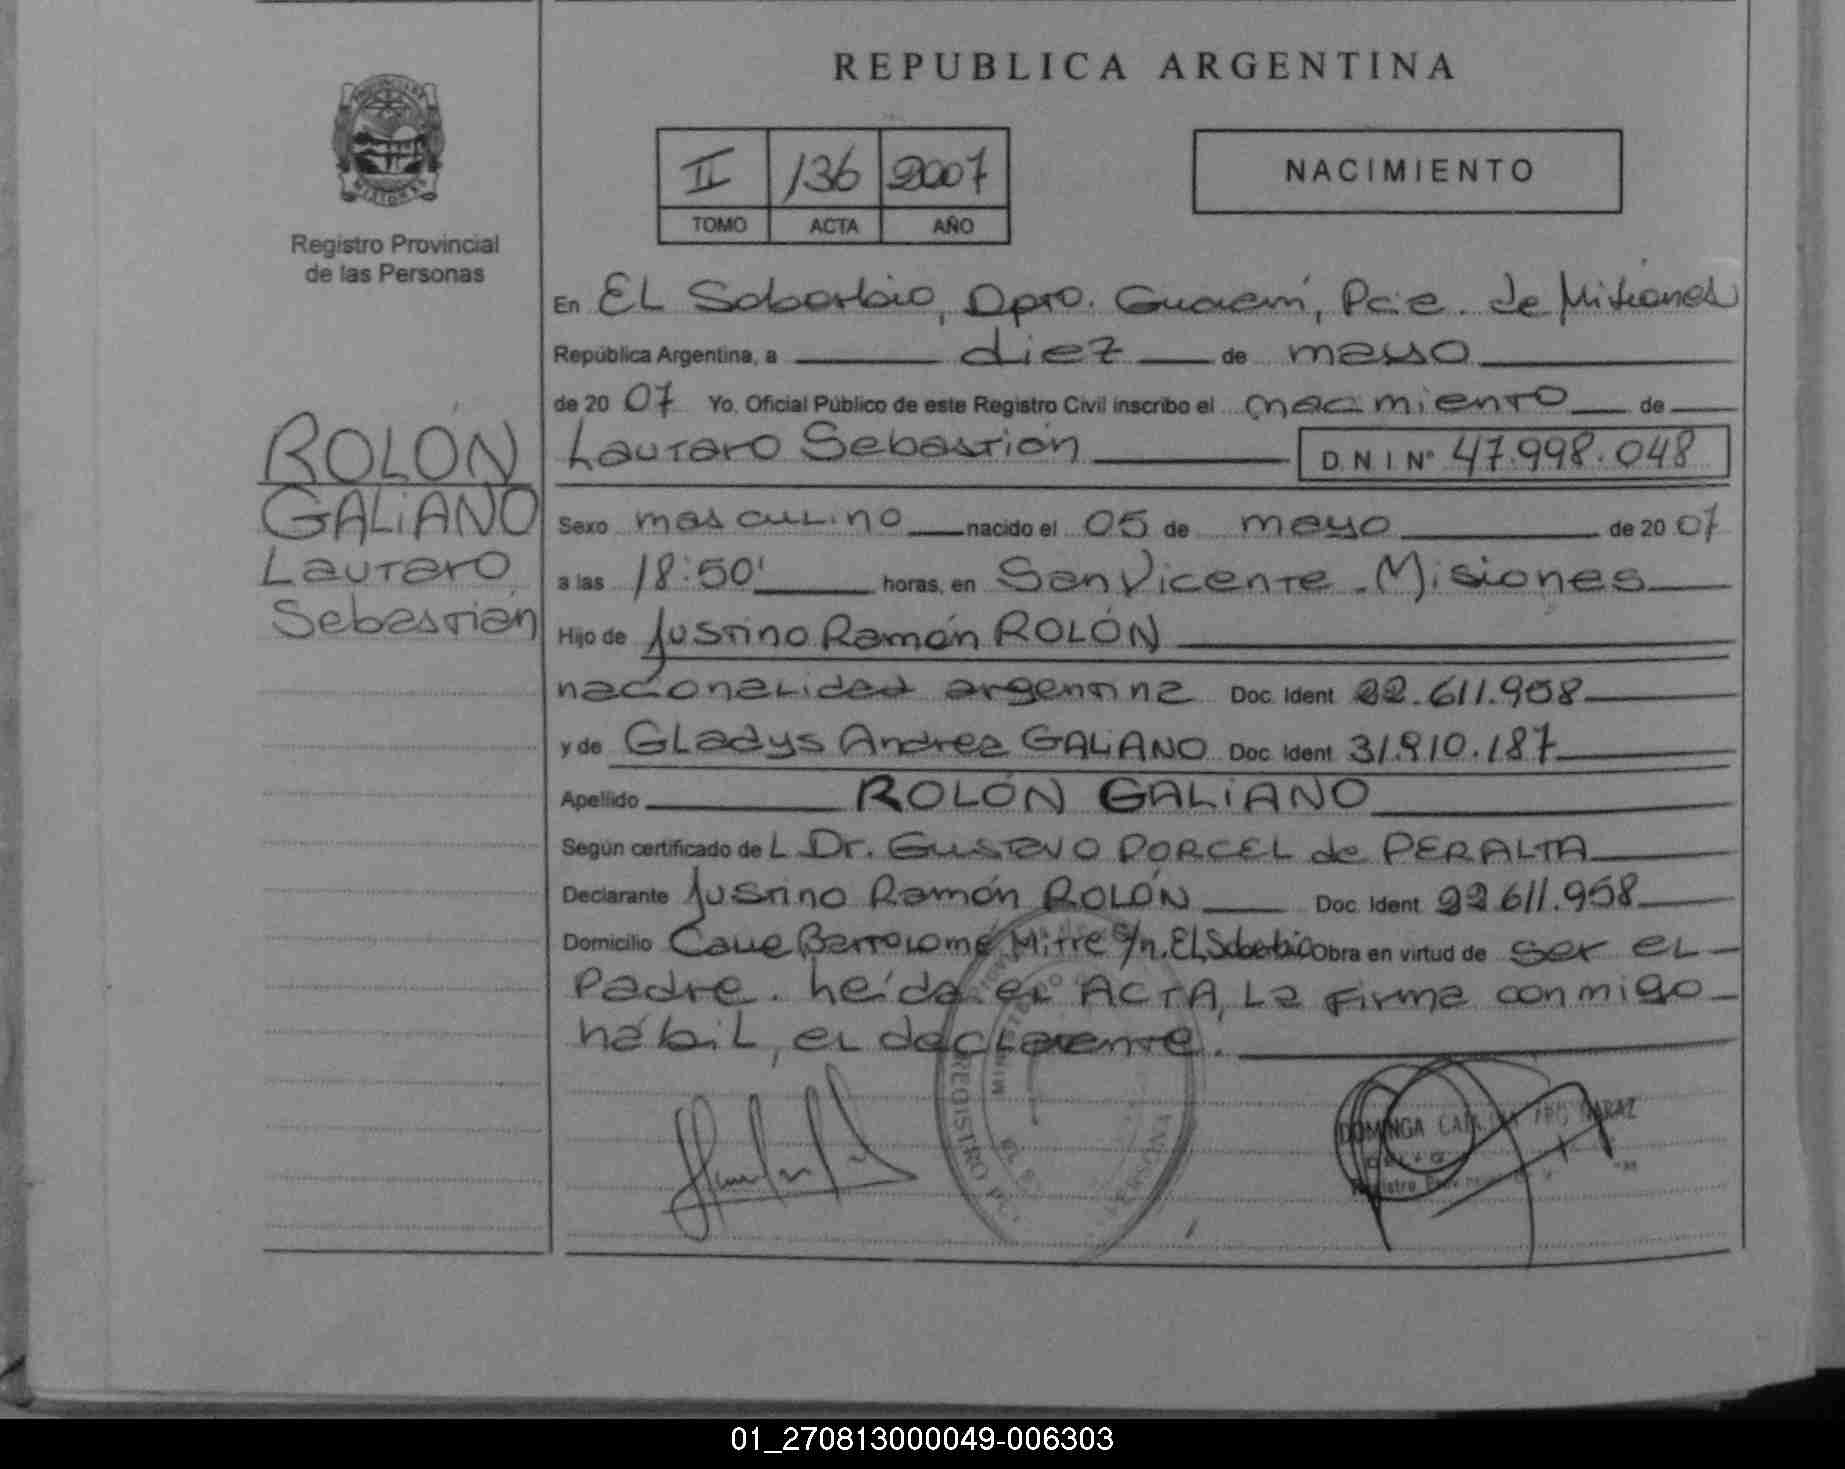 REPUBLICA ARGENTINA
II 136 2007
TOMO ACTA AÑO
NACIMIENTO
Registro Provincial
de las Personas
En EL Soberbio, Dpto. Guaraní, Pcia. de Misiones
República Argentina, a diez de mayo
de 20 07 Yo, Oficial Público de este Registro Civil inscribo el nacimiento de
Lautaro Sebastián D N I Nº 47.998.048
ROLÓN
GALiANO
Lautaro
Sebastián
Sexo masculino nacido el 05 de mayo de 20 07
a las 18:50' horas, en San Vicente - Misiones
Hijo de Justino Ramón ROLÓN
nacionalidad argentina Doc. Ident 22.611.958
y de Gladys Andrea GALIANO Doc. Ident 31.910.187
Apellido ROLÓN GALiANO
Según certificado de L Dr. Gustavo PORCEL de PERALTA
Declarante Justino Ramón ROLÓN Doc. Ident 22.611.958
Domicilio Calle Bartolomé Mitre s/n. El Soberbio Obra en virtud de ser el
Padre. Leída el ACTA, La firma conmigo
hábil, el declarante.
REGISTRO
DOMINGA
01_270813000049-006303